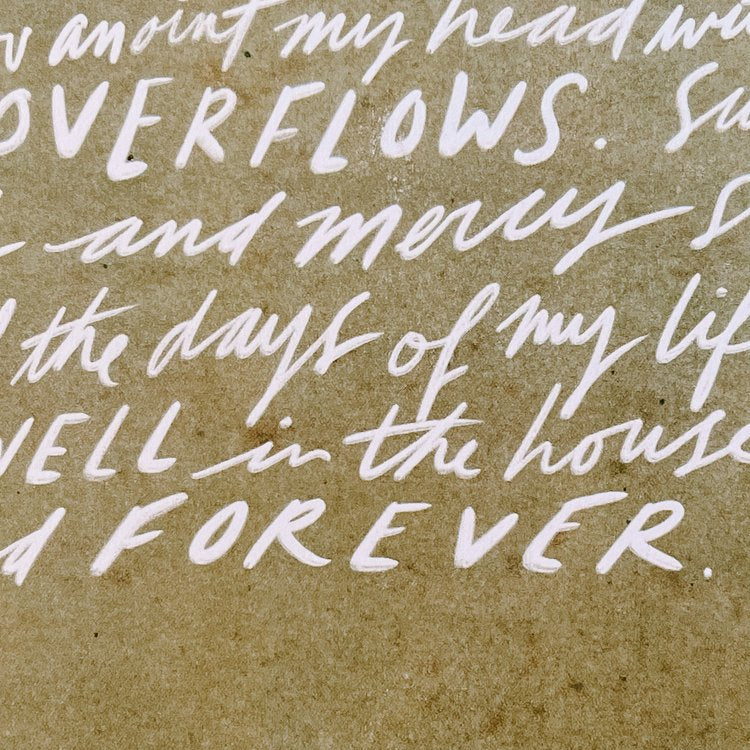 anoint my head
OVERFLOWS.
and mercy
the days of my
in the house
FOREVER.